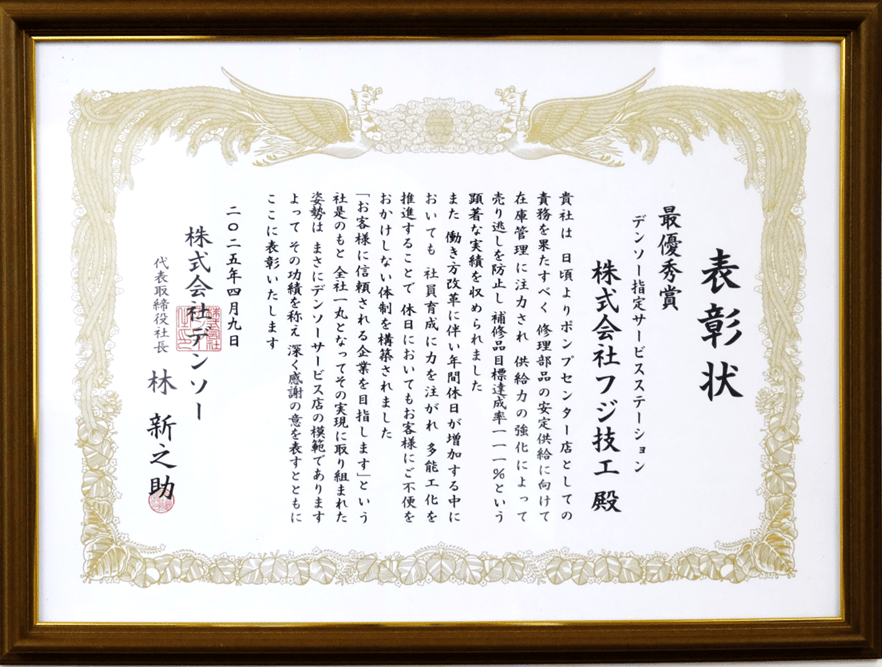 表彰状
最優秀賞
デンソー指定サービスステーション
株式会社フジ技工 殿
貴社は 日頃よりポンプセンター店としての
責務を果たすべく 修理部品の安定供給に向けて
在庫管理に注力され 供給力の強化によって
売り逃しを防止し 補修品目標達成率一一一%という
顕著な実績を収められました
また 働き方改革に伴い年間休日が増加する中に
おいても 社員育成に力を注がれ 多能工化を
推進することで 休日においてもお客様にご不便を
おかけしない体制を構築されました
「お客様に信頼される企業を目指します」という
社是のもと 全社一丸となってその実現に取り組まれた
姿勢は まさにデンソーサービス店の模範であります
よって その功績を称え 深く感謝の意を表すとともに
ここに表彰いたします
二〇二五年四月九日
株式会社デンソー
代表取締役社長 林 新之助